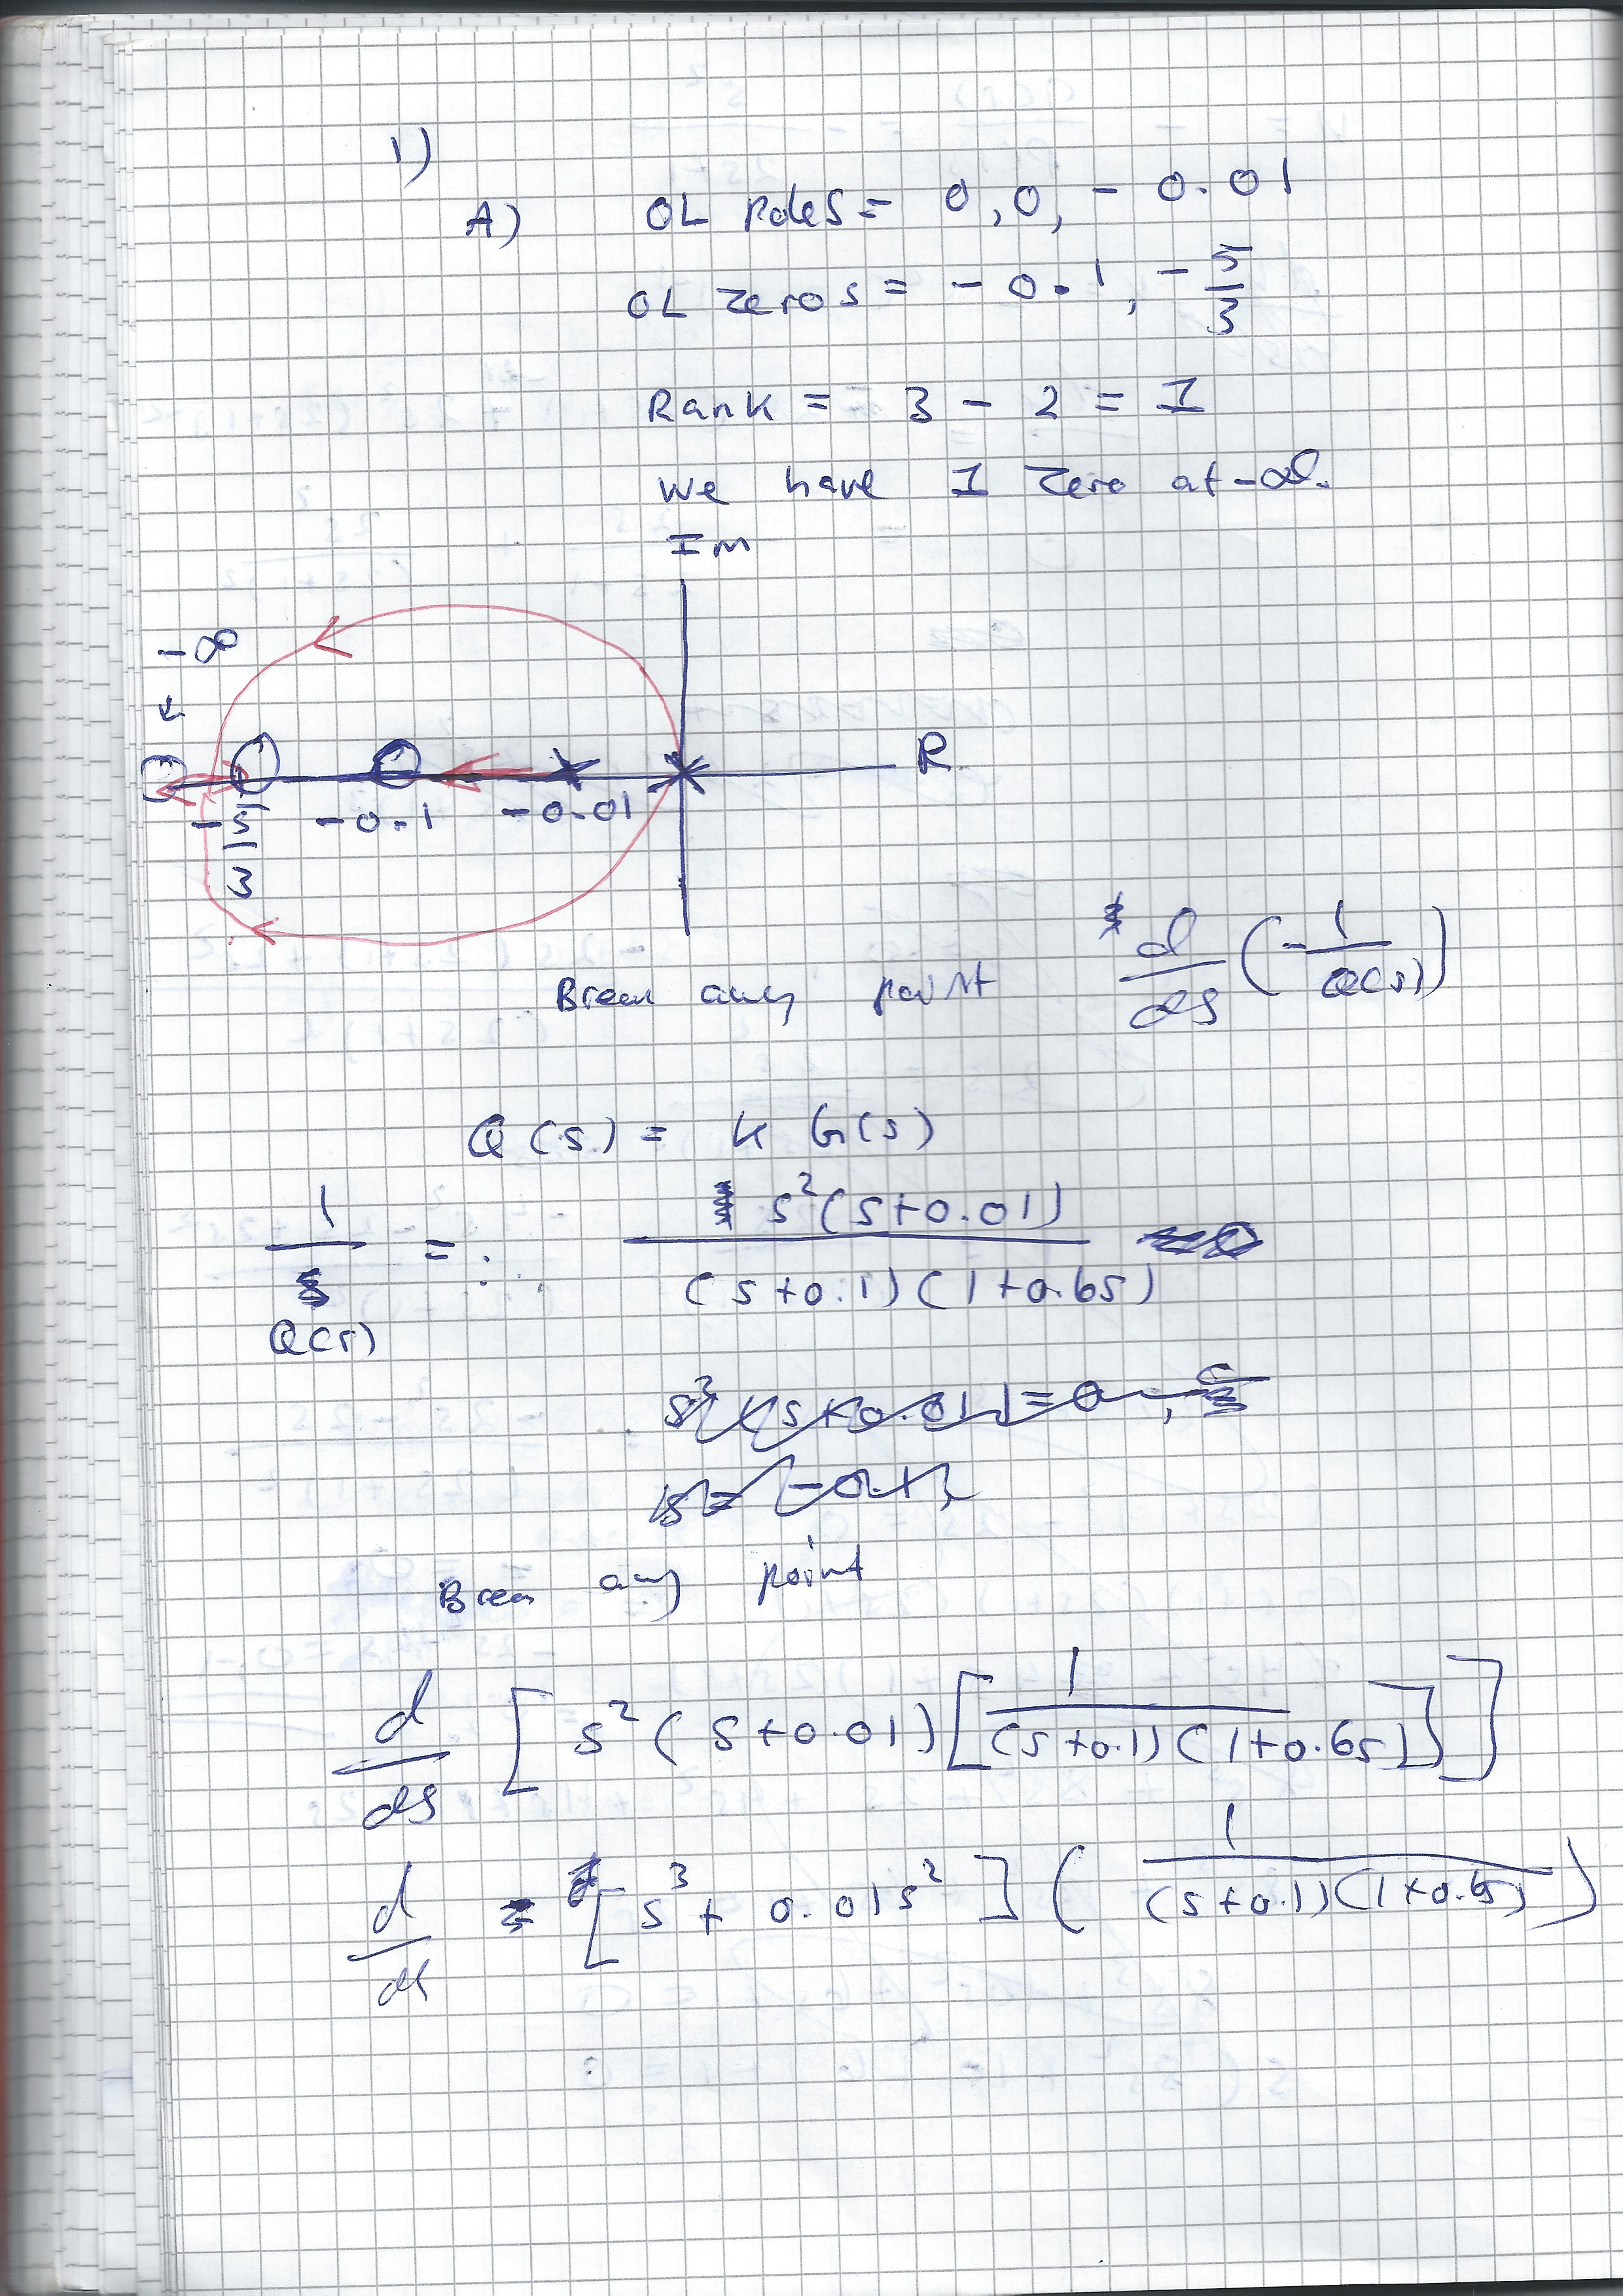 1)
A) OL Poles = 0, 0, - 0.01
OL zeros = - 0.1, - 5/3
Rank = 3 - 2 = 1
We have 1 zero at -∞.
Im
-∞
↓
R
- 5/3 - 0.1 - 0.01
Break away point d/ds (- 1/Q(s))
Q(s) = K G(s)
1/Q(s) = s²(s+0.01) / (s+0.1)(1+0.6s)
Break away point
d/ds [ s²(s+0.01) [ 1/(s+0.1)(1+0.6s) ] ]
d/ds [ s³ + 0.01s² ] ( 1/(s+0.1)(1+0.6s) )